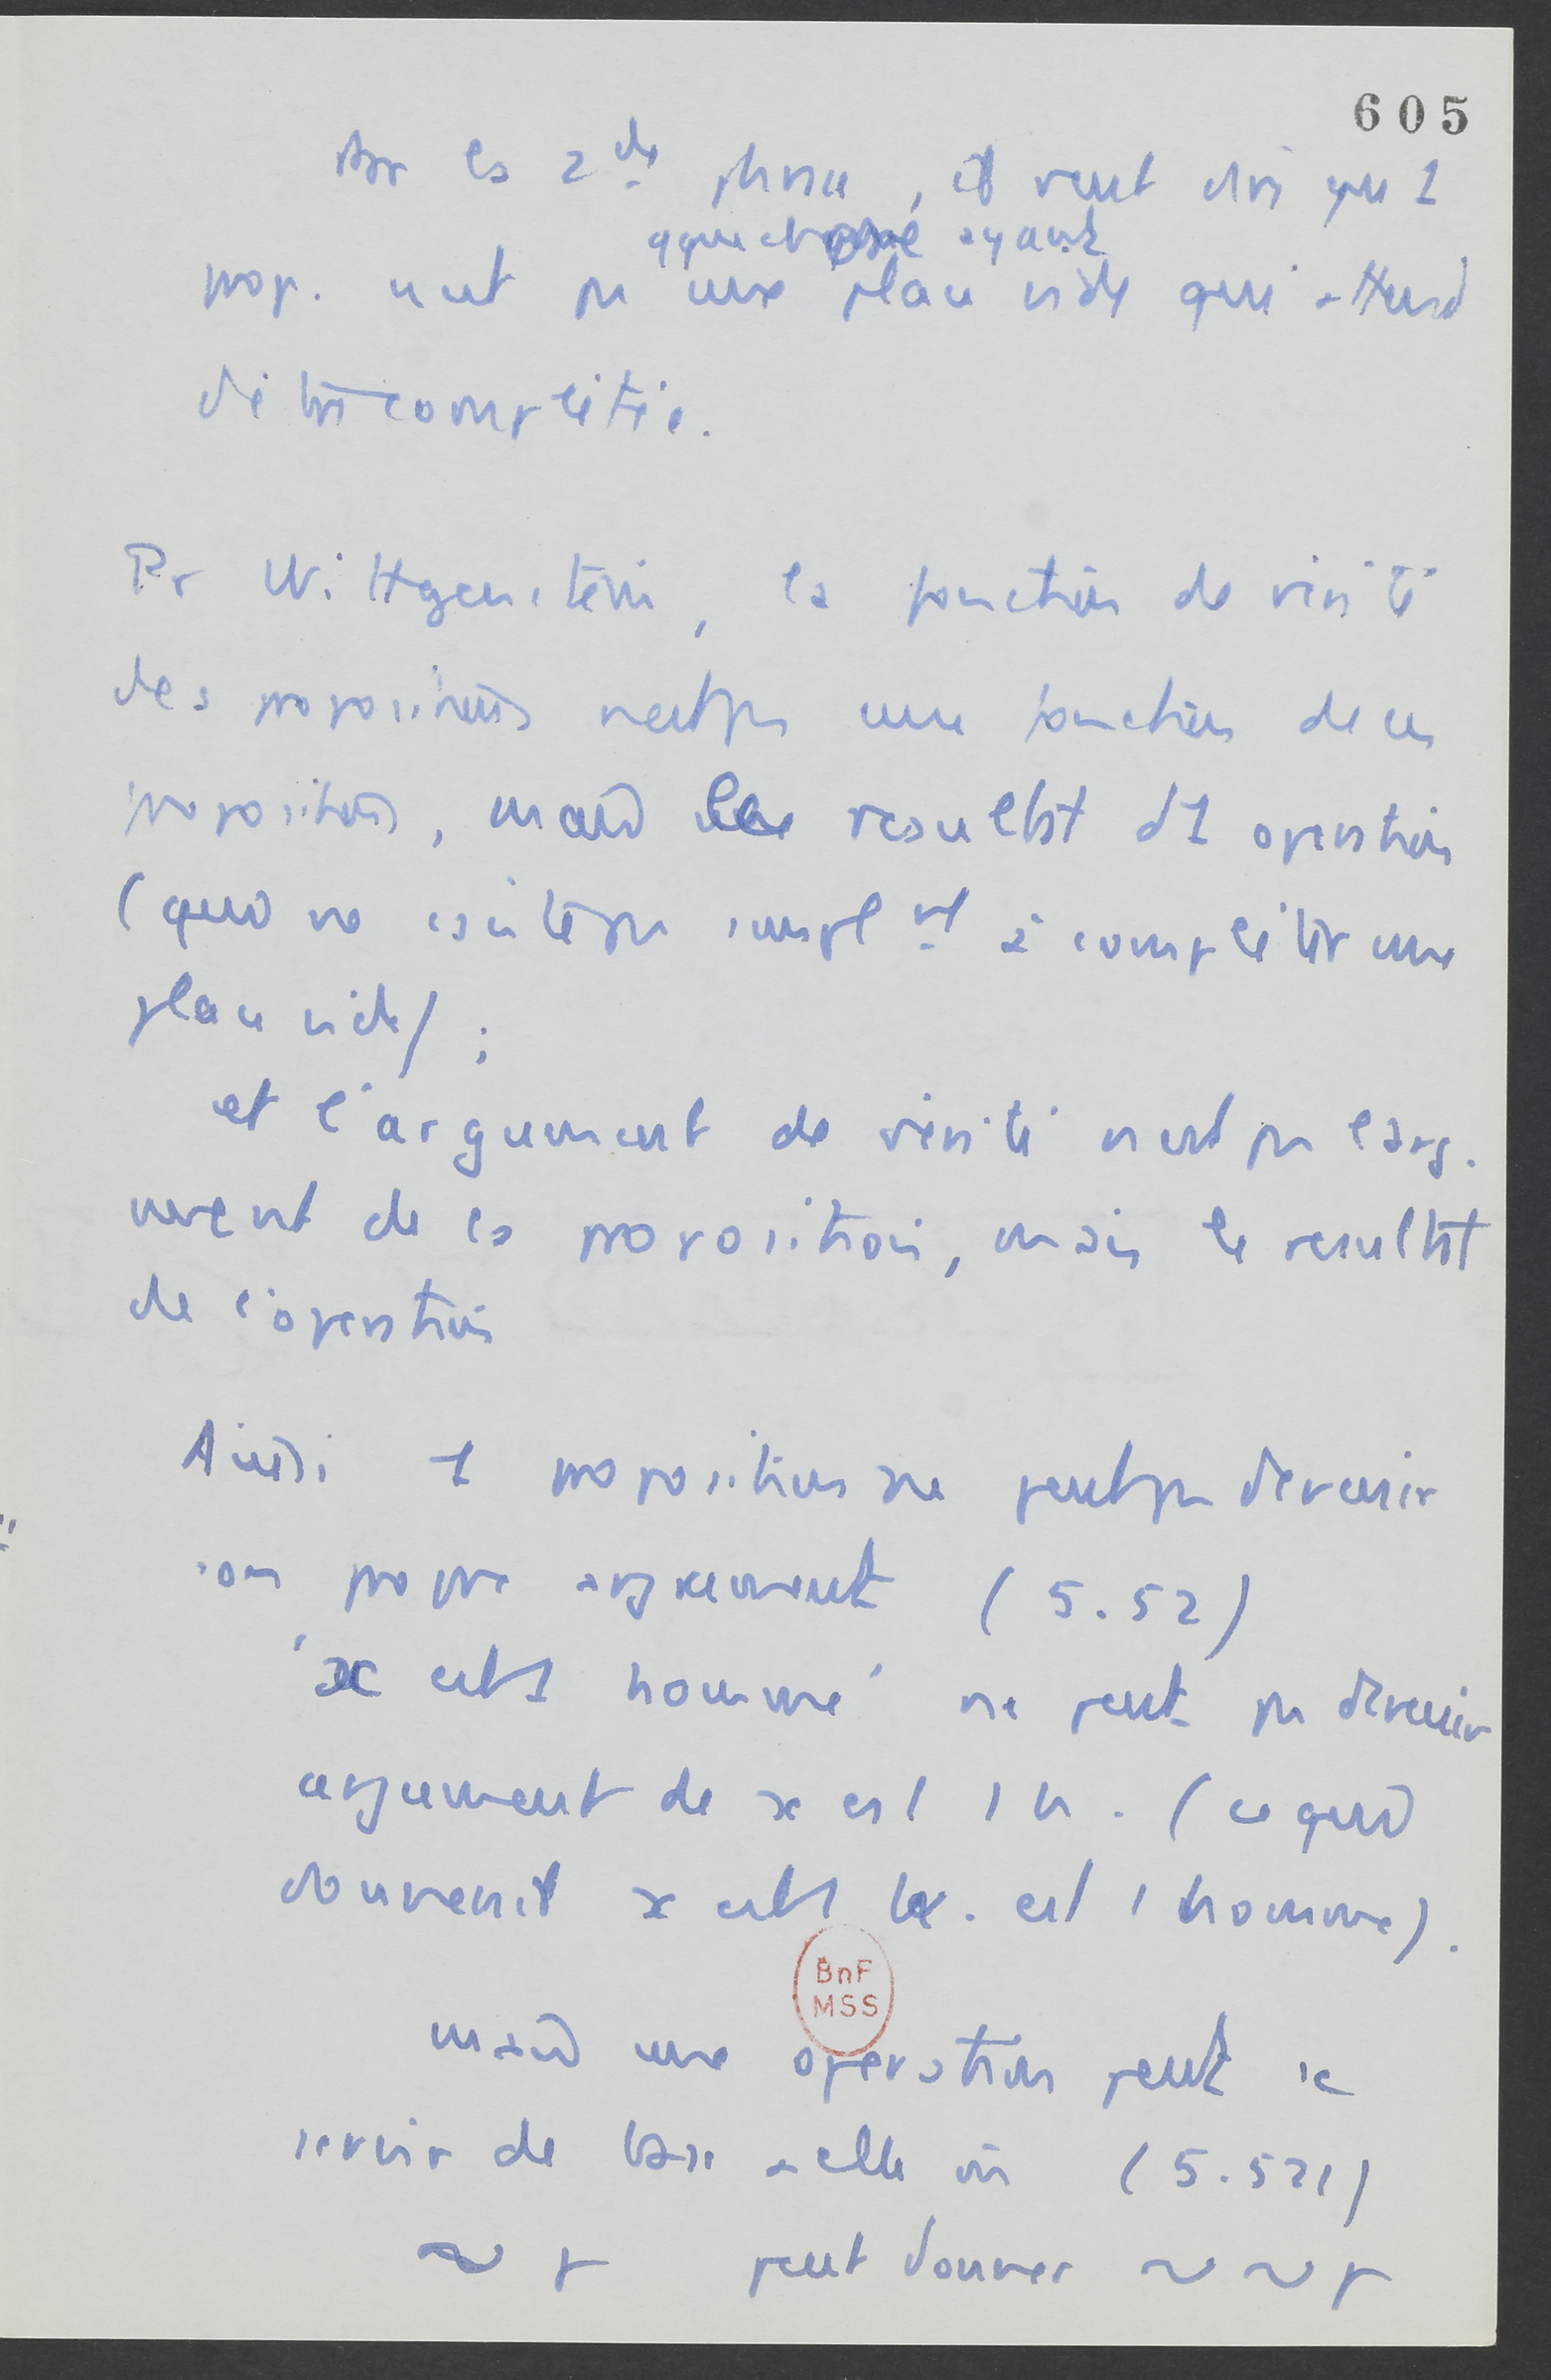 605
Par la 2de phrase, il veut dire que 1
qque chose ayant
prop. n'est pas une place vide qui attend
d'être complétée.
Pr Wittgenstein, la fonction de vérité
des propositions n'est pas une fonction de ces
propositions, mais le resultat d'1 operation
(qui ne consiste pas simplemt à compléter une
place vide) ;
et l'argument de vérité n'est pas l'argu-
ment de la proposition, mais le resultat
de l'operation
Ainsi 1 proposition ne peut pas devenir
son propre argument (5.52)
'x est 1 homme' ne peut pas devenir
argument de x est 1 h. (ce qui
donnerait x est 1 h. est 1 homme).
BnF
MSS
mais une operation peut se
servir de base a elle même (5.521)
~ p peut donner ~ ~ p